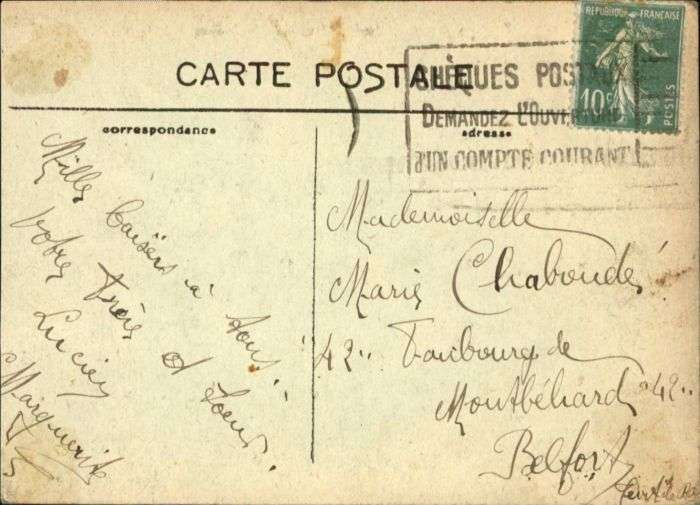 CARTE POSTALE
RÉPUBLIQUE FRANÇAISE
10c POSTES
CHÈQUES POSTAUX
DEMANDEZ L'OUVERTURE
D'UN COMPTE COURANT
correspondance
Milles baisers à tous
Votre frère et soeur
Lucien
Marguerite
adresse
Mademoiselle
Marie Chaboudé
42 Faubourg de
Montbéliard 42
Belfort